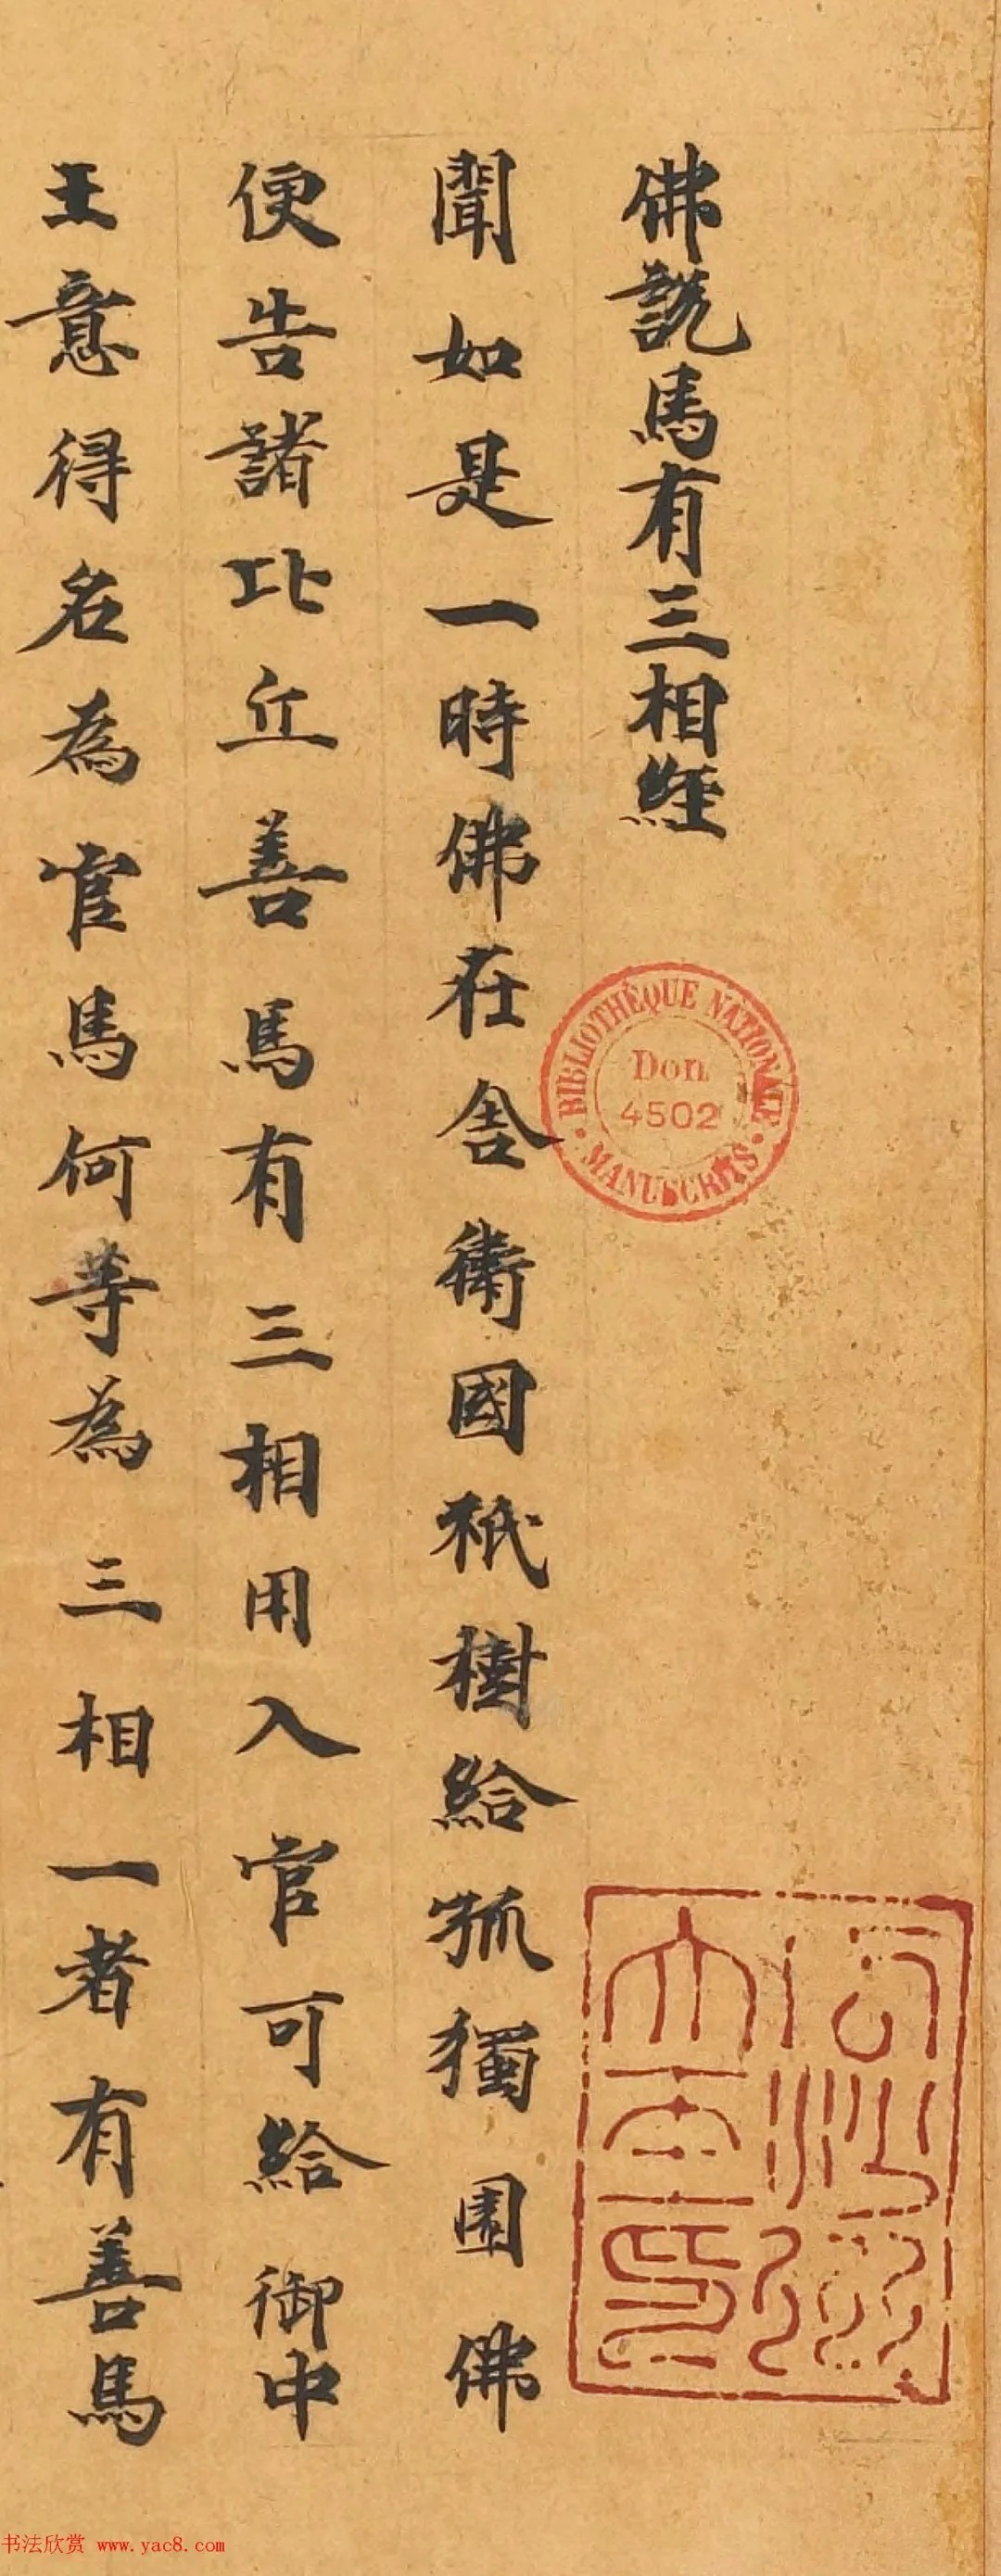 佛說馬有三相經
聞如是一時佛在舍衛國祇樹給孤獨園佛
便告諸比丘善馬有三相用入官可給御中
王意得名為官馬何等為三相一者有善馬
BIBLIOTHÈQUE NATIONALE
Don
4502
MANUSCRITS
書法欣赏 www.yac8.com